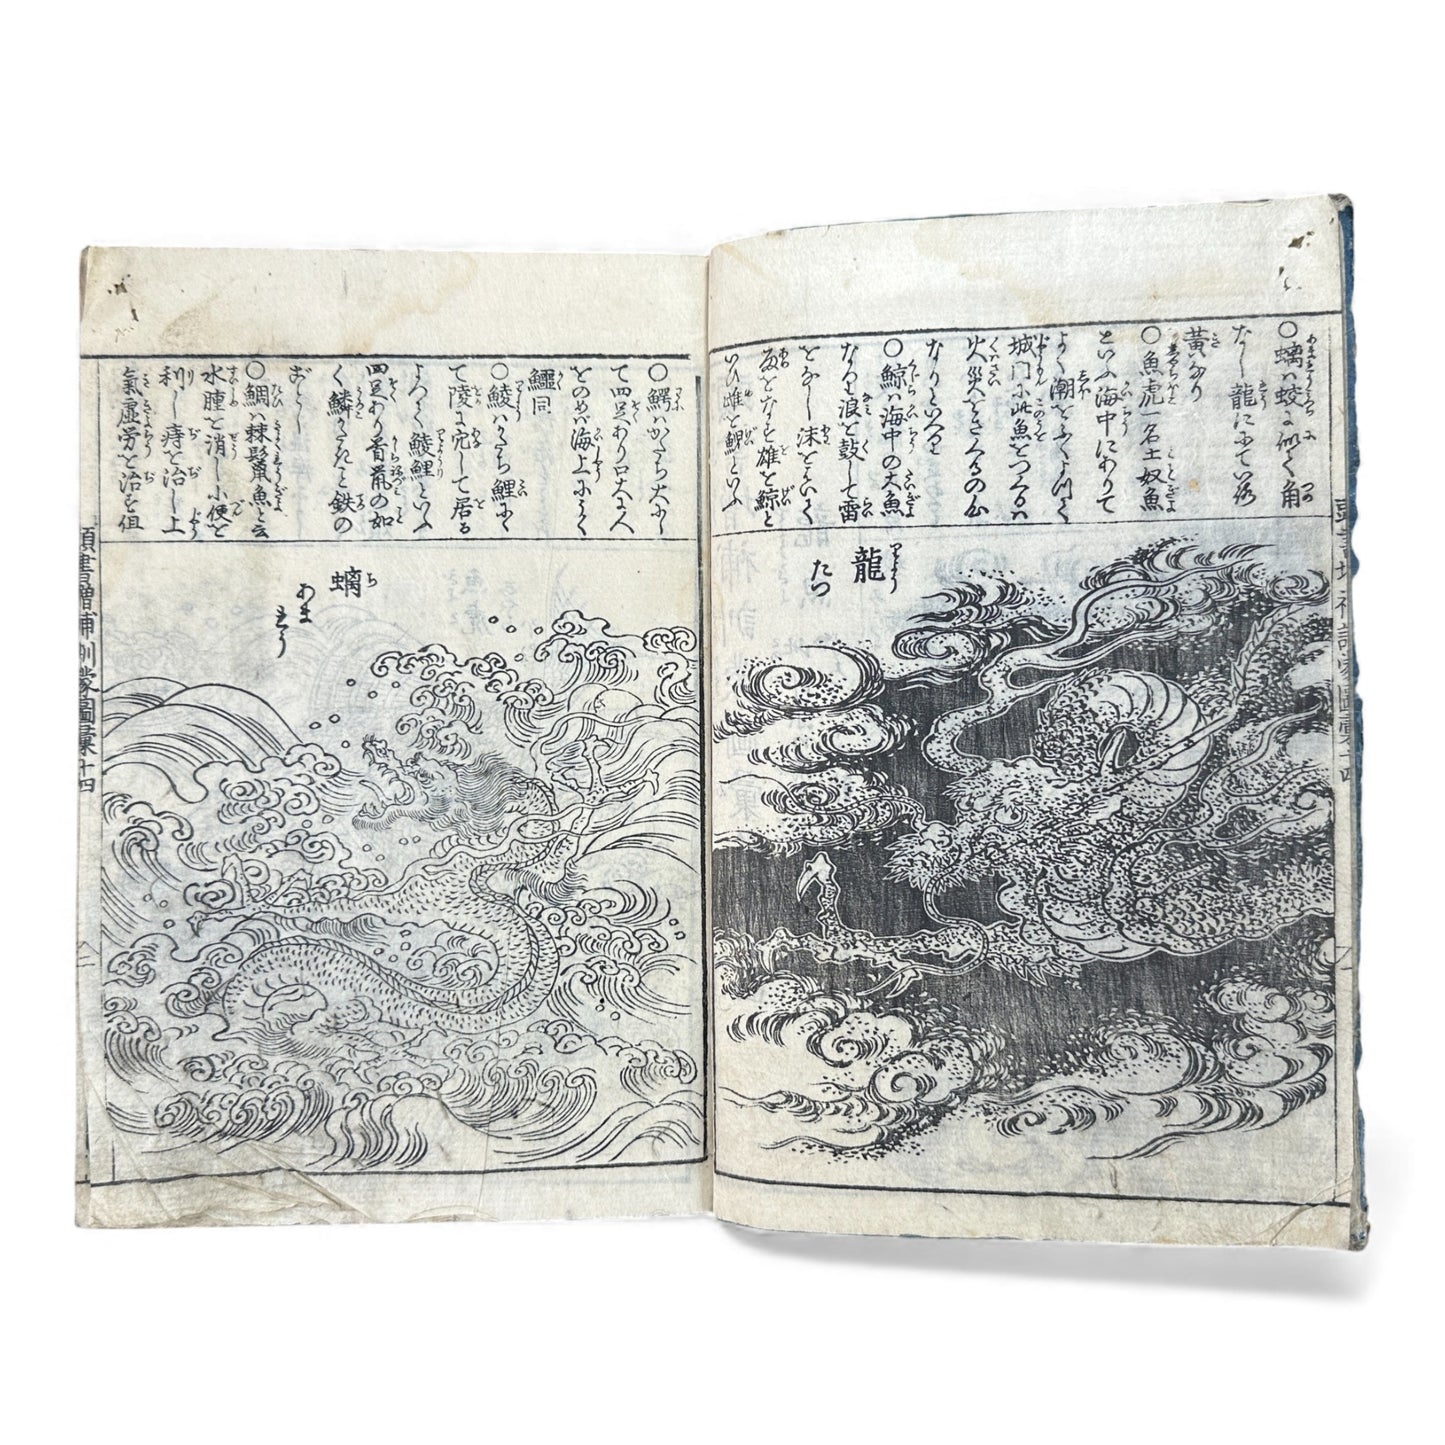 ○螭ハ蛟に似て角
なし龍にゝていろ
黄なり
○魚虎一名土奴魚
といふ海中にありて
よく潮をふくよつて
城門に此魚をつくるハ
火災をさくるの心
なりといへり
○鯨ハ海中の大魚
なりハ浪を鼓して雷
をなし沫をはいて
雨をなす雄を鯨と
いひ雌を鯢といふ
龍
りよう
たつ
○鰐ハかたち大にし
て四足あり口大に人
をのめバ海上にうく
鱷同
○鯪ハかたち鯉にて
て陵に穴して居る
よつて鯪鯉といふ
四足あり首鼠の如
く鱗かたき事鉄の
ごとし
○鯛ハ棘鬣魚と云
水腫を消し小便を
利し痔を治し上
氣虚労を治す但
螭
ち
あま
りう
頭書増補訓蒙圖彙十四